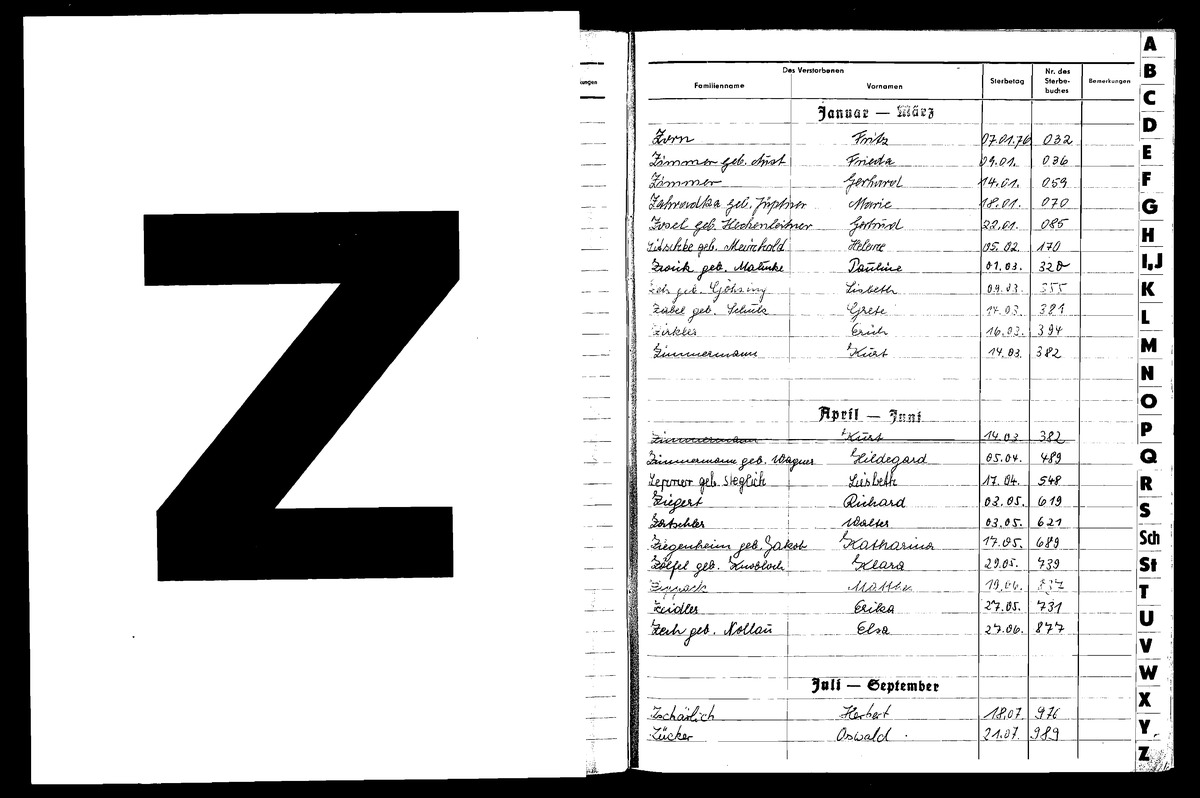 Z
Des Verstorbenen
Familienname Vornamen Sterbetag Nr. des Sterbe-buches Bemerkungen
Januar — März
Zorn Fritz 07.01.76 032
Zimmer geb. Aust Frieda 09.01. 036
Zimmer Gerhard 14.01. 059
geb. Jüptner Marie 18.01. 070
geb. Hechenleitner Gertrud 22.01. 085
geb. Meinhold Helene 05.02. 170
geb. Matuske Pauline 01.03. 320
Zeh geb. Göhsing Lisbeth 09.03. 355
Zabel geb. Schulz Grete 14.03. 381
Zirkler Erich 16.03. 394
Zimmermann Kurt 14.03. 382
April — Juni
Zimmermann Kurt 14.03 382
Zimmermann geb. Wagner Hildegard 05.04. 489
geb. Sieglich Lisbeth 17.04. 548
Ziegert Richard 03.05. 619
Walter 03.05. 621
Ziegenheim geb. Jakob Katharina 17.05. 689
Zöffel geb. Knobloch Klara 29.05. 739
19.06. 837
Zeidler Erika 27.05. 731
Zech geb. Nollau Elsa 27.06. 877
Juli — September
Zschärlich Herbert 18.07. 976
Zücker Oswald 21.07. 989
A
B
C
D
E
F
G
H
I,J
K
L
M
N
O
P
Q
R
S
Sch
St
T
U
V
W
X
Y
Z